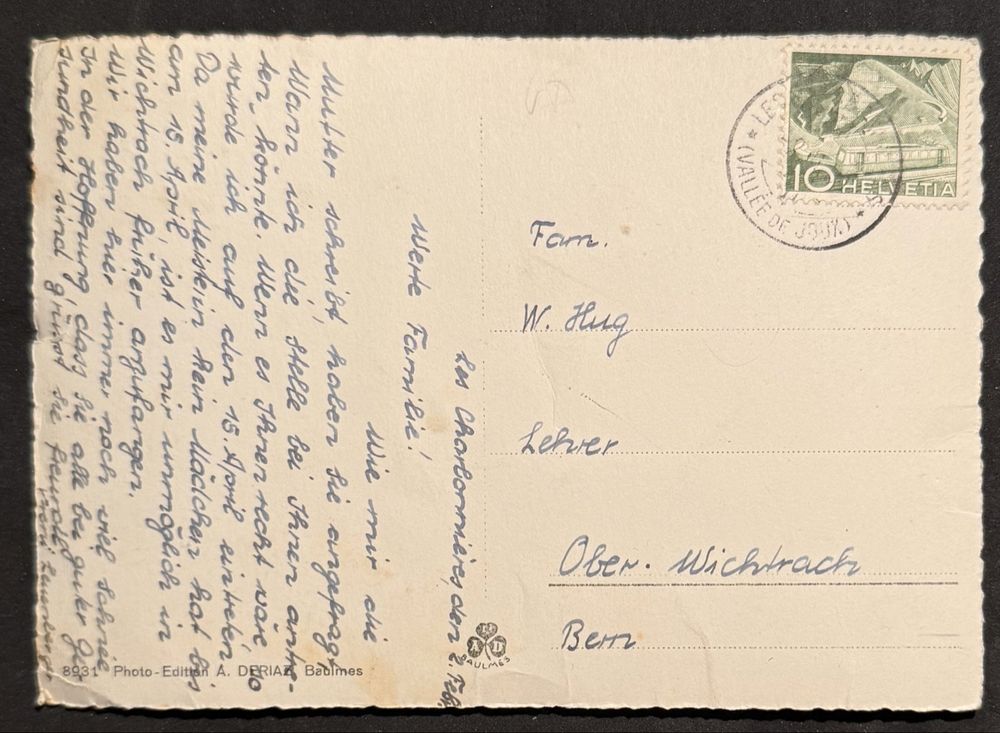 Les Charbonnières, den 2. Feb.
Werte Familie!
Wie mir die
Mutter schreibt, haben Sie angefragt
Wann ich die Stelle bei Ihnen antre-
ten, könnte. Wenn es Ihnen recht wäre so
würde ich auf den 15. April eintreten
Da meine Meisterin kein Mädchen hat bis
am 15. April, ist es mir unmöglich in
Wichtrach früher anzufangen.
Wir haben hier immer noch viel Schnee
In der Hoffnung, dass Sie alle bei guter Ge-
sundheit sind grüsst Sie freundl.
Fam.
W. Hug
Lehrer
Ober-Wichtrach
Bern
10 HELVETIA
(VALLÉE DE JOUX)
A D
BAULMES
8931 Photo-Edition A. DERIAZ, Baulmes